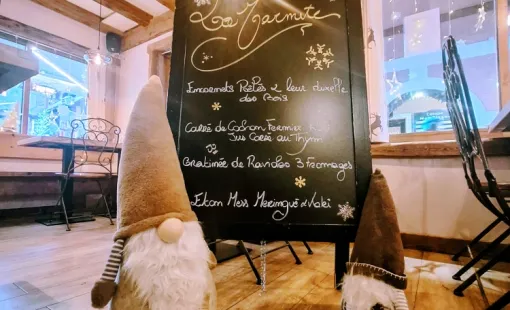 La Marmite
Encornets Poêlés & leur duxelle
des Bois
Carré de Cochon Fermier Rôti
Jus Corsé au Thym
Gratinée de Ravioles 3 Fromages
Eton Mess Meringué